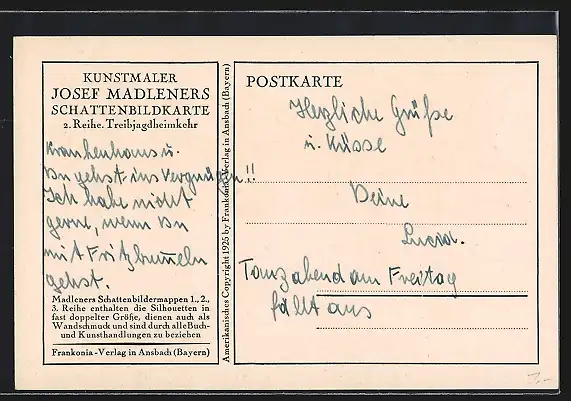 KUNSTMALER
JOSEF MADLENERS
SCHATTENBILDKARTE
2. Reihe. Treibjagdheimkehr
Krankenhaus u.
Du gehst ins Vergnügen!!
Ich habe nicht
gerne, wenn Du
mit Fritz bummeln
gehst.
Madleners Schattenbildermappen 1., 2.,
3. Reihe enthalten die Silhouetten in
fast doppelter Größe, dienen auch als
Wandschmuck und sind durch alle Buch-
und Kunsthandlungen zu beziehen
Frankonia-Verlag in Ansbach (Bayern)
Amerikanisches Copyright 1925 by Frankonia-Verlag in Ansbach (Bayern)
POSTKARTE
Herzliche Grüße
u. Küsse
Deine
Lucia.
Tanzabend am Freitag
fällt aus